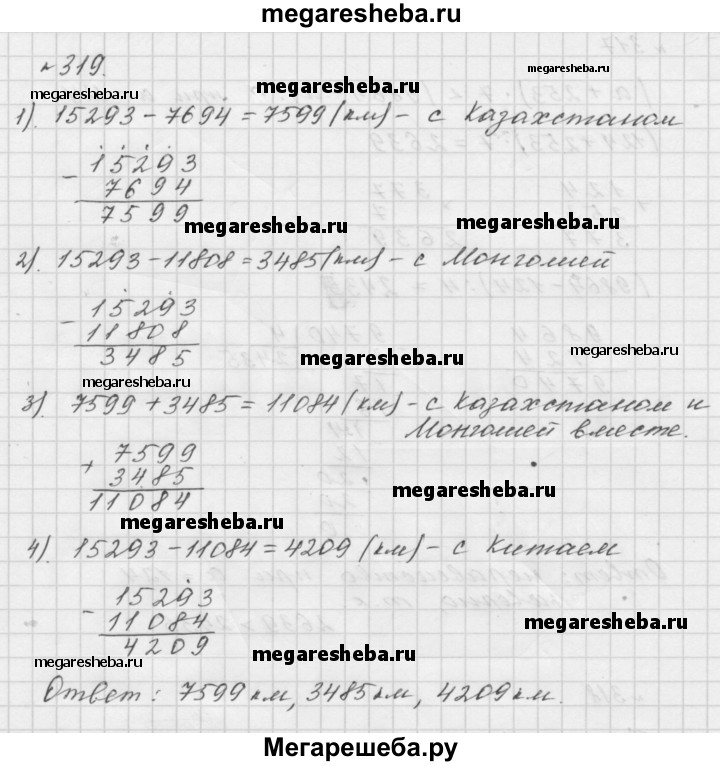 megaresheba.ru
№319.
megaresheba.ru
megaresheba.ru
1). 15293 - 7694 = 7599 (км) - с Казахстаном
- 15293
7694
7599
megaresheba.ru
megaresheba.ru
2). 15293 - 11808 = 3485 (км) - с Монголией
- 15293
11808
3485
megaresheba.ru
megaresheba.ru
megaresheba.ru
3). 7599 + 3485 = 11084 (км) - с Казахстаном и
Монголией вместе.
+ 7599
3485
11084
megaresheba.ru
megaresheba.ru
4). 15293 - 11084 = 4209 (км) - с Китаем
- 15293
11084
4209
megaresheba.ru
megaresheba.ru
megaresheba.ru
Ответ: 7599 км, 3485 км, 4209 км.
Мегарешеба.ру